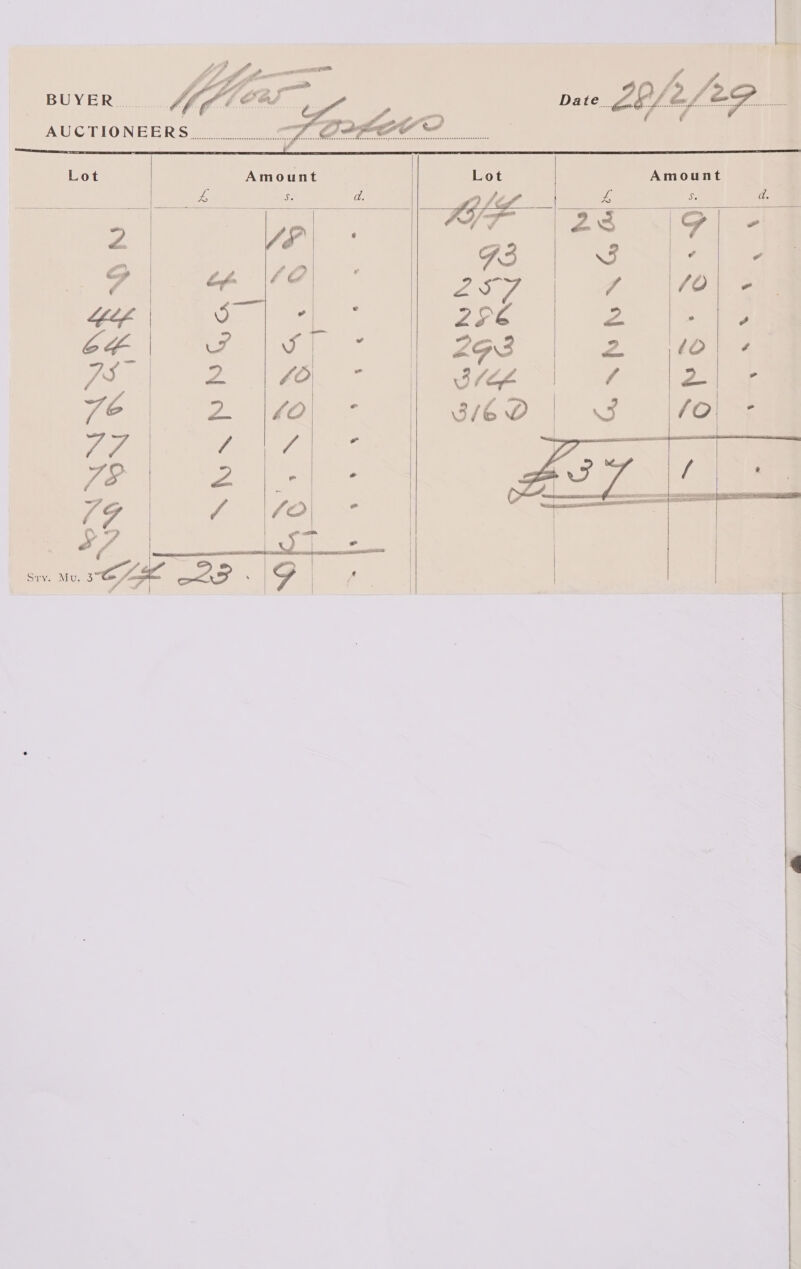 BUYER
Date 28/2/29
AUCTIONEERS Fosters
Lot Amount Lot Amount
£ s. d. £ s. d.
B/F 23 9 -
2 18 -
93 3 - -
9 4 10 -
257 1 10 -
44 5 - -
256 2 - -
64 3 5 -
293 2 10 -
75 2 10 -
314 1 2 -
76 2 10 -
316D 3 10 -
77 1 1 -
78 2 - -
£37 1 -
79 1 10 -
87 5 -
Sry. Mu. 3 C/F 23 . 9 -